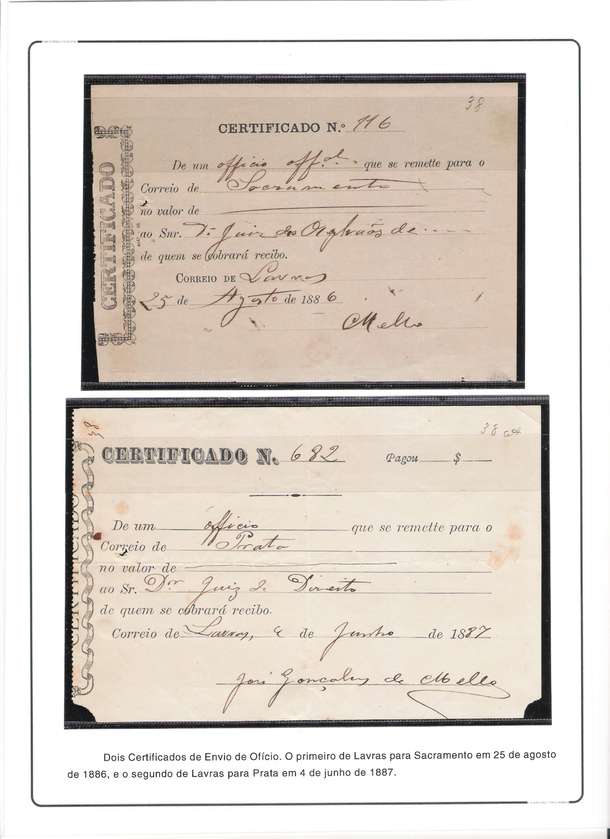 38
CERTIFICADO N.º 116
De um officio off.al que se remette para o
Correio de Sacramento
no valor de
ao Snr. Dr. Juiz dos Orphaos de
de quem se cobrará recibo.
CORREIO DE Lavras
25 de Agosto de 1886
Mello
CERTIFICADO
38
38
CERTIFICADO N. 682 Pagou $
De um officio que se remette para o
Correio de Prata
no valor de
ao Sr. Dor Juiz de Direito
de quem se cobrará recibo.
Correio de Lavras, 4 de Junho de 1887
José Gonçalves de Mello
CERTIFICADO
Dois Certificados de Envio de Ofício. O primeiro de Lavras para Sacramento em 25 de agosto
de 1886, e o segundo de Lavras para Prata em 4 de junho de 1887.